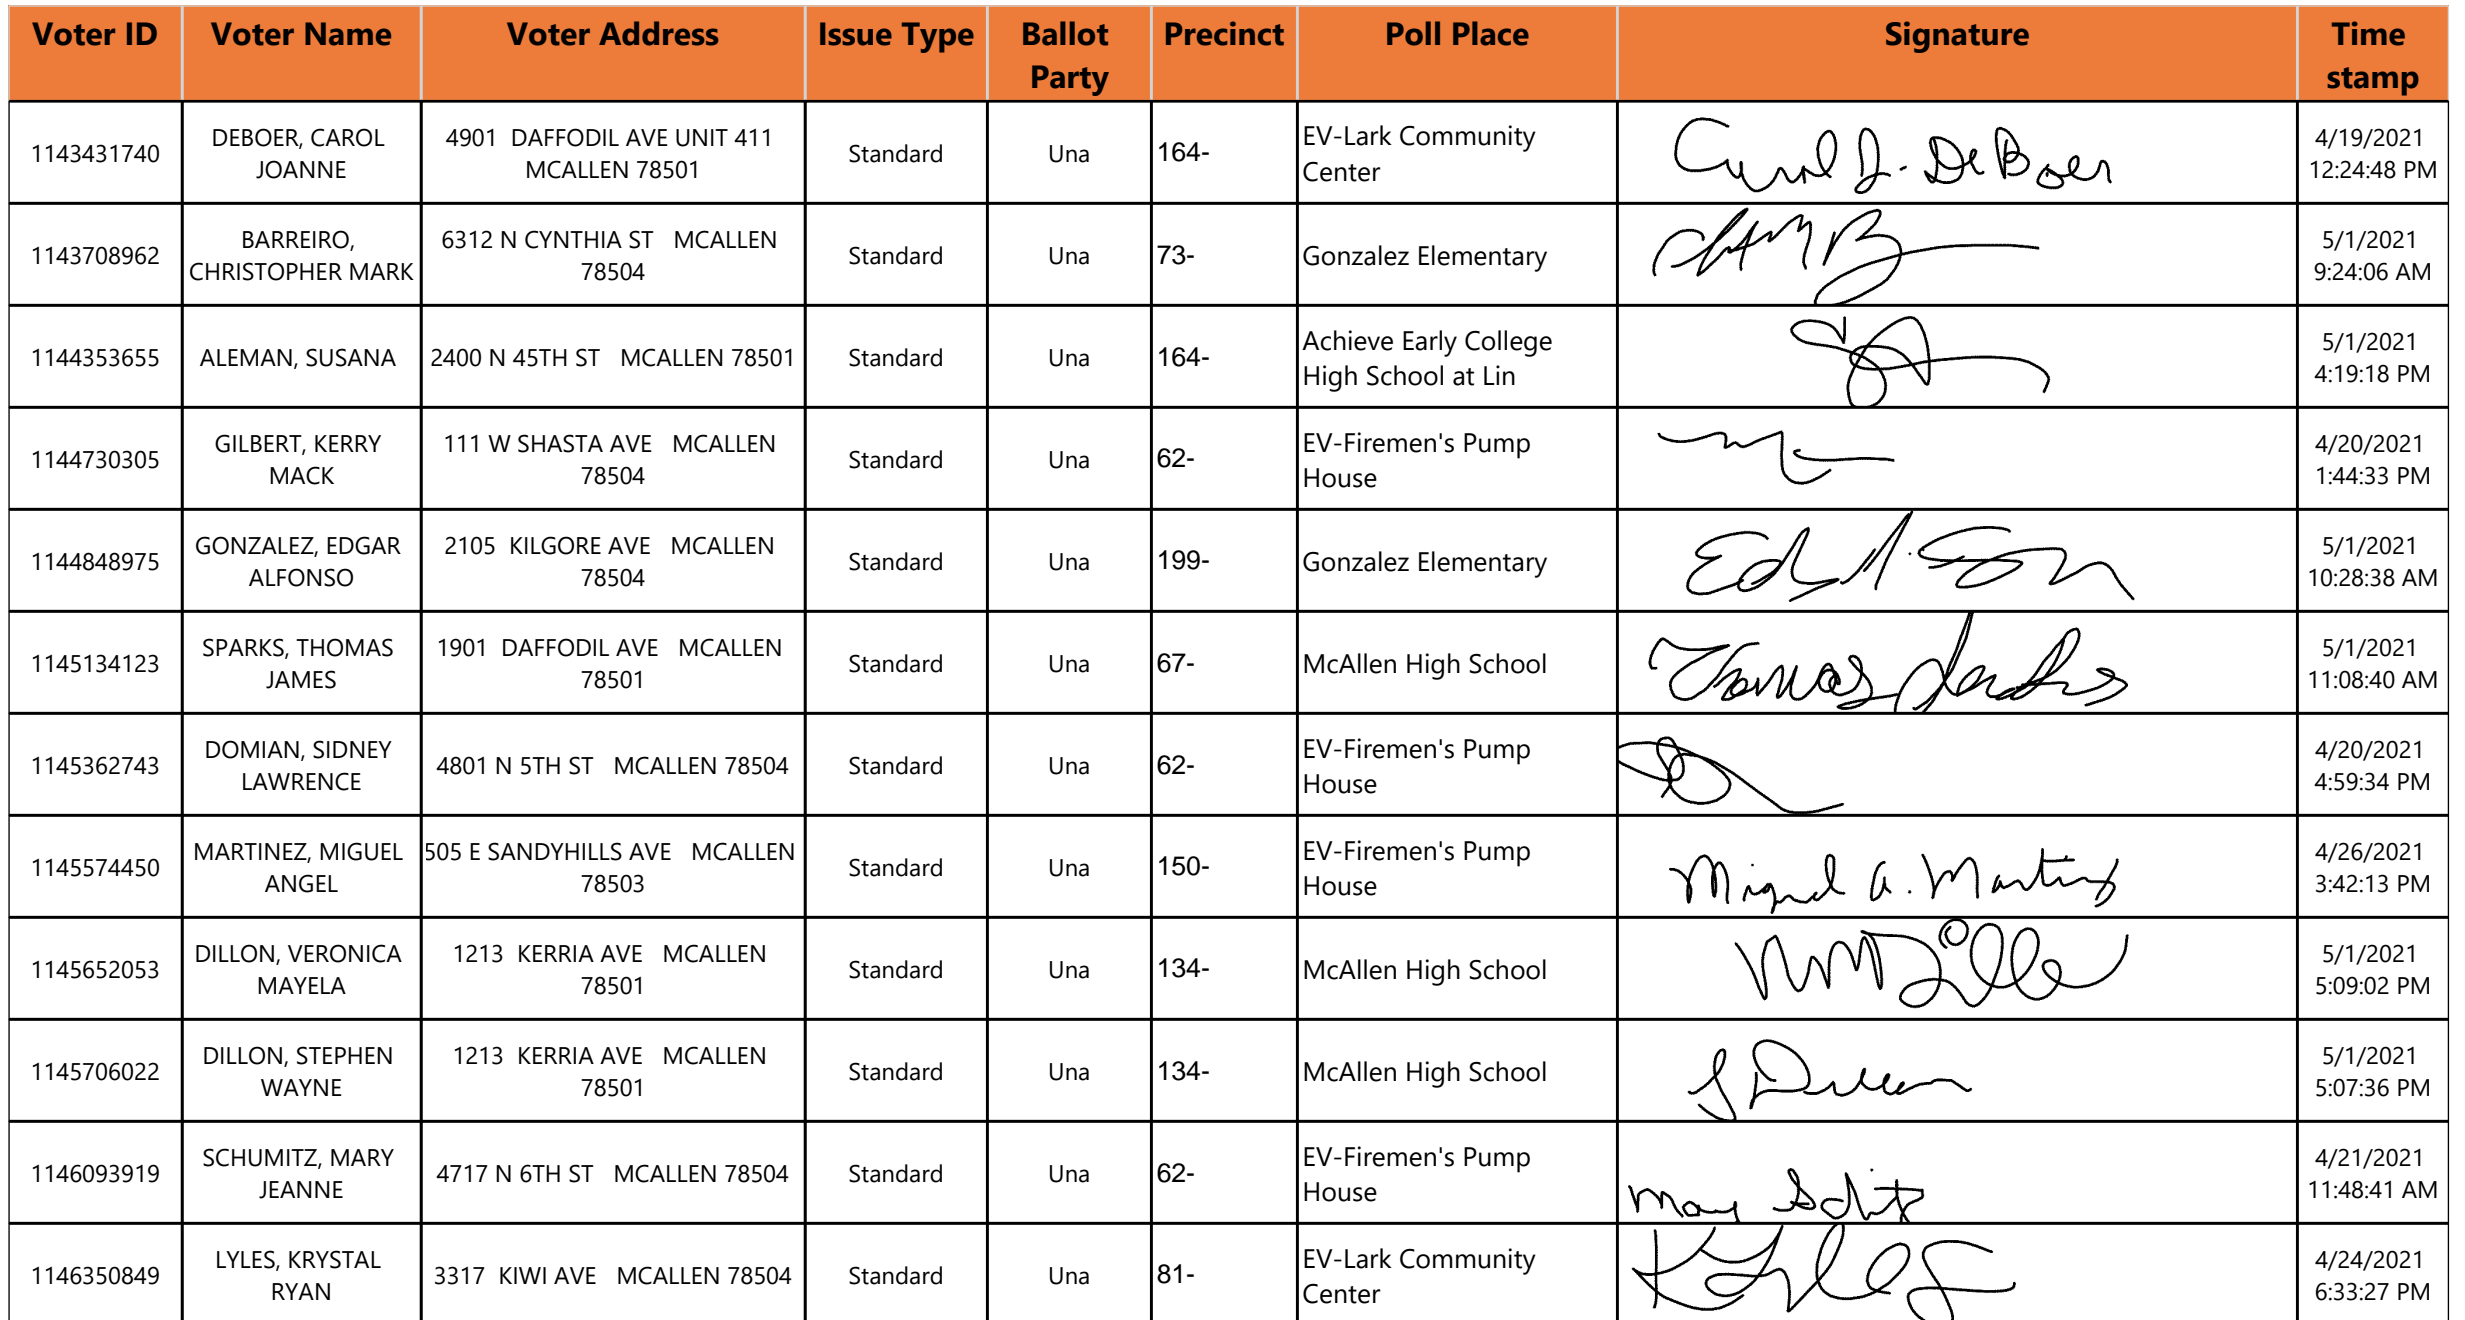 Voter ID Voter Name Voter Address Issue Type Ballot Party Precinct Poll Place Signature Time stamp
1143431740 DEBOER, CAROL JOANNE 4901 DAFFODIL AVE UNIT 411 MCALLEN 78501 Standard Una 164- EV-Lark Community Center Carol J. DeBoer 4/19/2021 12:24:48 PM
1143708962 BARREIRO, CHRISTOPHER MARK 6312 N CYNTHIA ST MCALLEN 78504 Standard Una 73- Gonzalez Elementary 5/1/2021 9:24:06 AM
1144353655 ALEMAN, SUSANA 2400 N 45TH ST MCALLEN 78501 Standard Una 164- Achieve Early College High School at Lin 5/1/2021 4:19:18 PM
1144730305 GILBERT, KERRY MACK 111 W SHASTA AVE MCALLEN 78504 Standard Una 62- EV-Firemen's Pump House 4/20/2021 1:44:33 PM
1144848975 GONZALEZ, EDGAR ALFONSO 2105 KILGORE AVE MCALLEN 78504 Standard Una 199- Gonzalez Elementary 5/1/2021 10:28:38 AM
1145134123 SPARKS, THOMAS JAMES 1901 DAFFODIL AVE MCALLEN 78501 Standard Una 67- McAllen High School Thomas Sparks 5/1/2021 11:08:40 AM
1145362743 DOMIAN, SIDNEY LAWRENCE 4801 N 5TH ST MCALLEN 78504 Standard Una 62- EV-Firemen's Pump House 4/20/2021 4:59:34 PM
1145574450 MARTINEZ, MIGUEL ANGEL 505 E SANDYHILLS AVE MCALLEN 78503 Standard Una 150- EV-Firemen's Pump House Miguel A. Martinez 4/26/2021 3:42:13 PM
1145652053 DILLON, VERONICA MAYELA 1213 KERRIA AVE MCALLEN 78501 Standard Una 134- McAllen High School 5/1/2021 5:09:02 PM
1145706022 DILLON, STEPHEN WAYNE 1213 KERRIA AVE MCALLEN 78501 Standard Una 134- McAllen High School 5/1/2021 5:07:36 PM
1146093919 SCHUMITZ, MARY JEANNE 4717 N 6TH ST MCALLEN 78504 Standard Una 62- EV-Firemen's Pump House Mary 4/21/2021 11:48:41 AM
1146350849 LYLES, KRYSTAL RYAN 3317 KIWI AVE MCALLEN 78504 Standard Una 81- EV-Lark Community Center 4/24/2021 6:33:27 PM